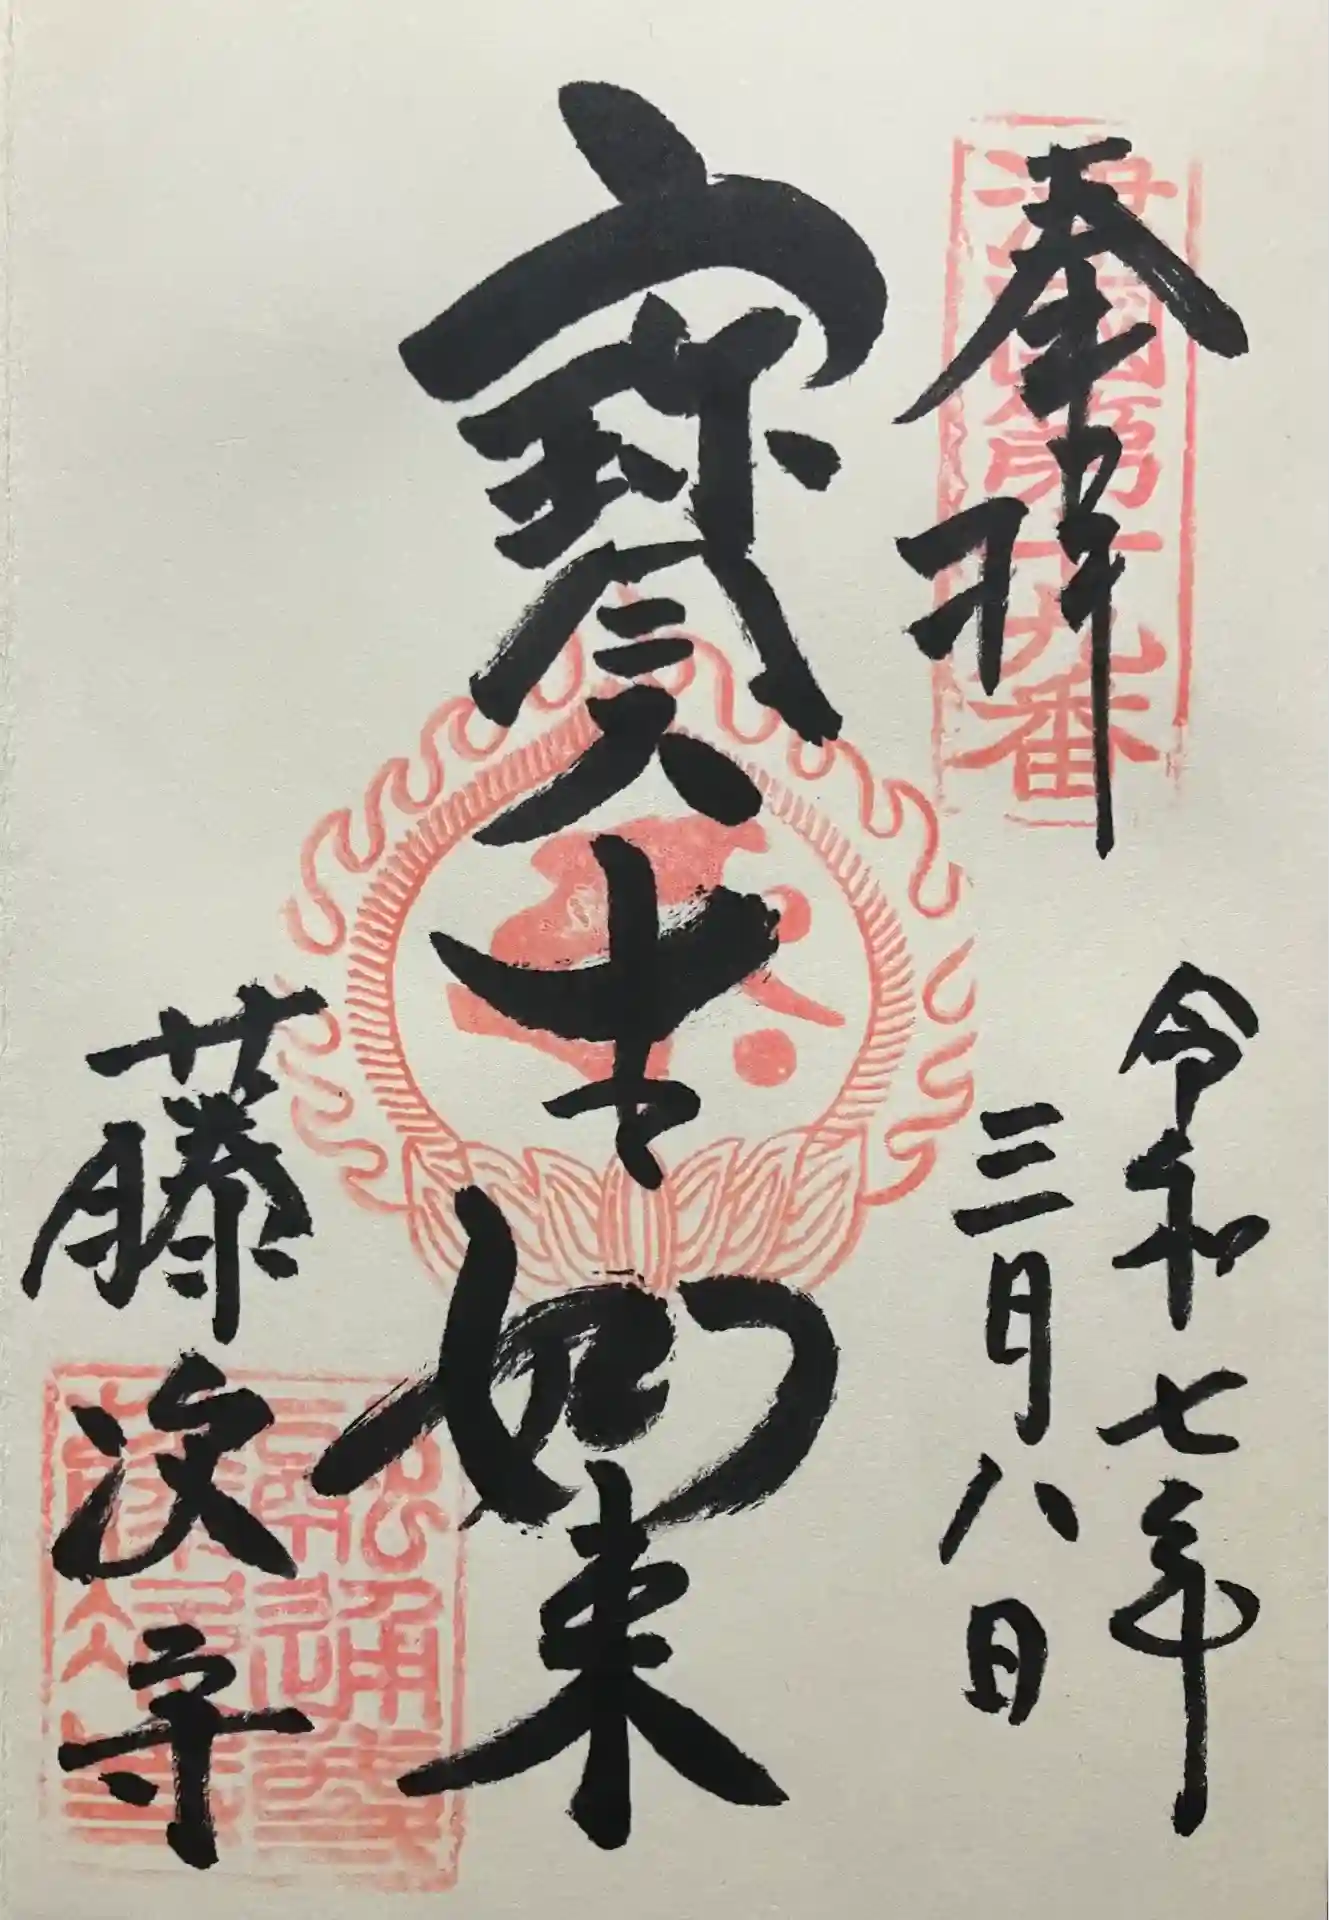 奉拝
津國第十九番
令和七年
三月八日
寳生如来
藤次寺